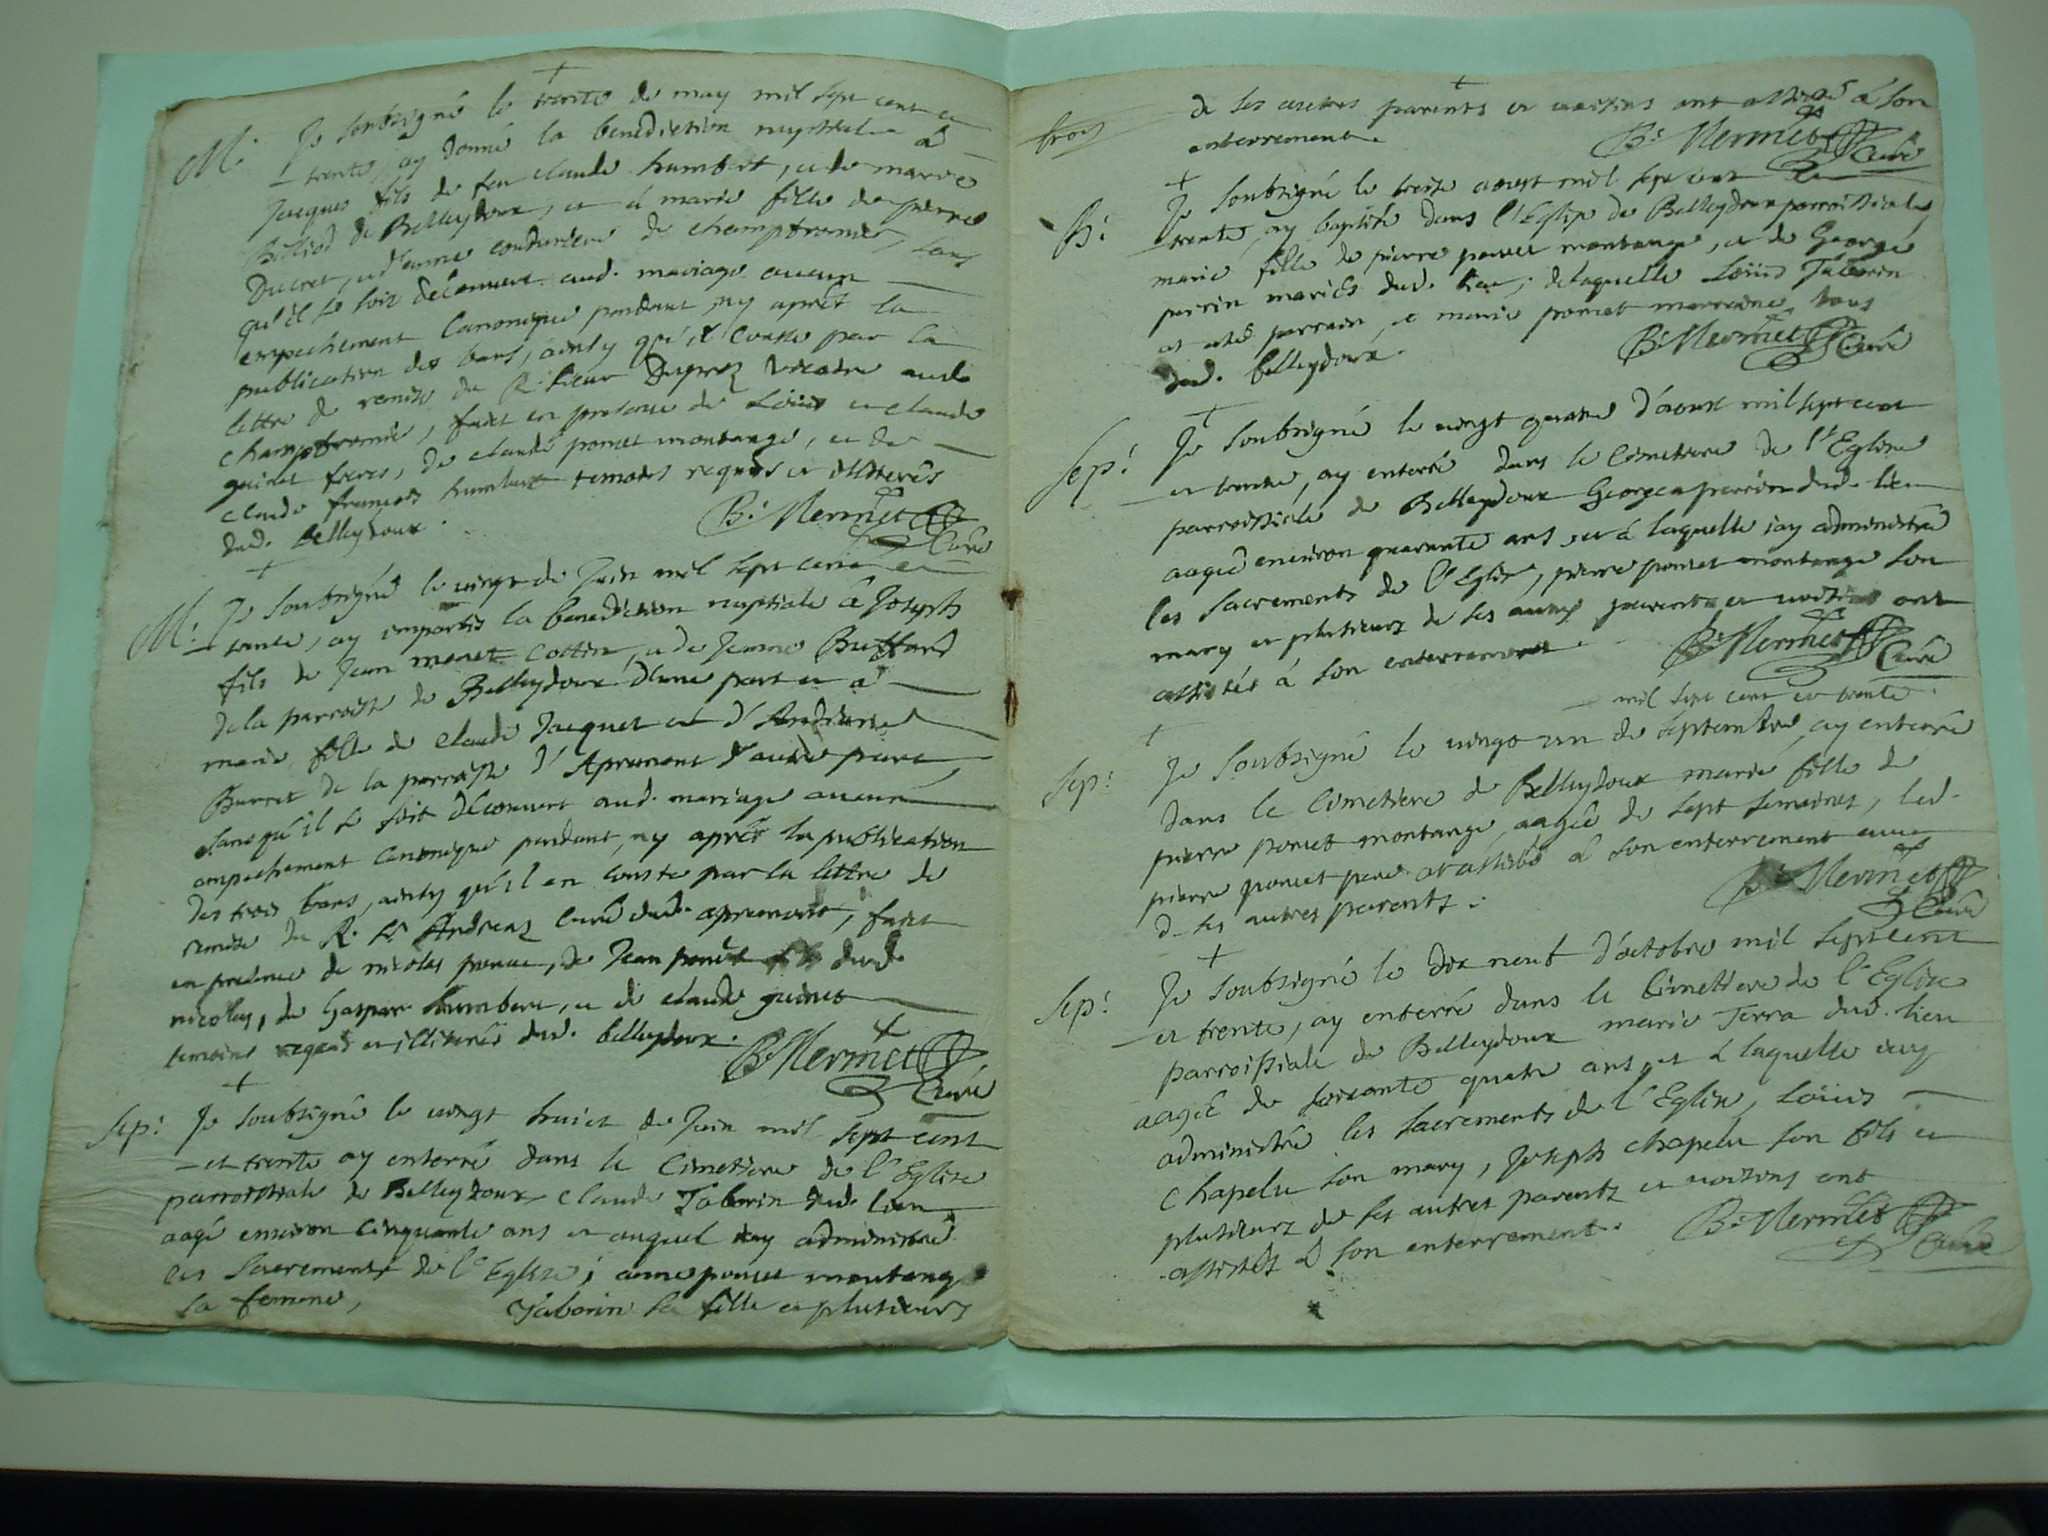 M: Je soubsigné le trente de may mil sept cent et
trente, ay donné la benediction nuptiale à
Jacques fils de feu claude humbert, et de marie
de Belleydoux, et à marie fille de pierre
Ducret, et d'anne couturiere de champfromier, sans
qu'il se soit découvert aud. mariage aucun
empechement canonique pendant, ny aprêt la
publication des bans, ainsy qu'il conste par la
lettre de remise du R. sieur Duprez vicaire aud.
champfromier, fait en presence de Loüis et claude
guinet freres, de claude poncet montange, et de
claude françois humbert temoins requis et illiterés
dud. belleydoux.
B: Mermet
Curé
M: Je soubsigné le vingt de Juin mil sept cent et
trente, ay impartis la benediction nuptiale â Joseph
fils de Jean monet cottin, et de Jeanne Buffard
de la parroisse de Belleydoux d'une part et à
marie fille de claude Jacquet et d'Andriane
Burret de la parroisse d'Apremont d'autre part,
sans qu'il se soit découvert aud. mariage aucun
empechement canonique pendant, ny aprêt la publication
des trois bans, ainsy qu'il en conste par la lettre de
remise du R. Sr Andreaz curé dud. apremont, fait
en presence de nicolas poncet, de Jean poncet fils dud.
nicolas, de Gaspar humbert, et de claude guinet
temoins requis et illiterés dud. belleydoux.
B: Mermet
Curé
Sep: Je soubsigné le vingt huict de Juin mil sept cent
et trente ay enterré dans le Cimetiere de l'Eglise
parroissiale de Belleydoux claude Taborin dud. lieu
aagé environ cinquante ans et auquel iay administré
les sacrements de l'Eglise; anne poncet montange
sa femme, Taborin sa fille et plusieurs
troy
de ses autres parents et voisins ont assisté à son
enterrement.
B: Mermet
Curé
B: Je soubsigné le treize aoust mil sept cent et
trente, ay baptisé dans l'Eglise de Belleydoux parroissiale
marie fille de pierre poncet montange, et de George
perrin mariés dud. lieu; de laquelle Loüis Taborin
at eté parrain, et marie poncet marraine tous
dud. belleydoux.
B: Mermet
Curé
Sep: Je soubsigné le vingt quatre d'aoust mil sept cent
et trente, ay enterré dans le Cimetiere de l'Eglise
parroissiale de Belleydoux George perrin dud. lieu
aagée environ quarante ans, et à laquelle iay administré
les sacrements de l'Eglise, pierre poncet montange son
mary et plusieurs de ses autres parents et voisins ont
assistés à son enterrement.
B: Mermet
Curé
mil sept cent et trente.
Sep: Je soubsigné le vingt un de septembre ay enterré
dans le Cimetiere de Belleydoux marie fille de
pierre poncet montange, aagée de sept semaines, led.
pierre poncet pere at assisté à son enterrement avec
de ses autres parents.
B: Mermet
Curé
Sep: Je soubsigné le dix neuf d'octobre mil sept cent
et trente, ay enterré dans le Cimetiere de l'Eglise
parroissiale de Belleydoux marie Terra dud. lieu
aagée de soixante quatre ans, et à laquelle iay
administré les sacrements de l'Eglise, Loüis
Chapelu son mary, Joseph chapelu son fils et
plusieurs de ses autres parents et voisins ont
assistés à son enterrement.
B: Mermet
Curé